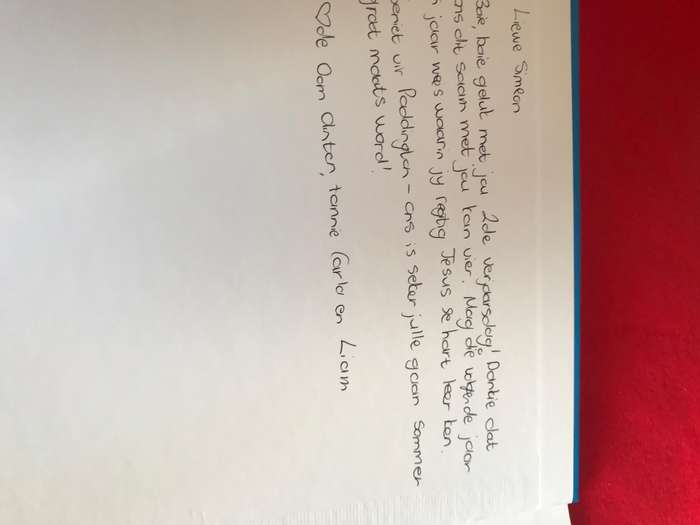 Liewe Simeon
Baie, baie geluk met jou 2de verjaarsdag! Dankie dat
ons dit saam met jou kan vier. Mag die volgende jaar
'n jaar wees waarin jy regtig Jesus se hart leer ken.
Geniet vir Paddington - ons is seker julle gaan sommer
groot maats word!
♡de Oom Anton, tannie Carla en Liam